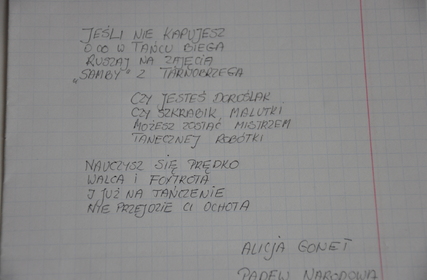 JEŚLI NIE KAPUJESZ
O CO W TAŃCU BIEGA
RUSZAJ NA ZAJĘCIA
„SAMBY" Z TARNOBRZEGA
CZY JESTEŚ DOROŚLAK
CZY SZKRABIK MALUTKI
MOŻESZ ZOSTAĆ MISTRZEM
TANECZNEJ ROBÓTKI
NAUCZYSZ SIĘ PRĘDKO
WALCA I FOXTROTA
I JUŻ NA TAŃCZENIE
NIE PRZEJDZIE CI OCHOTA
ALICJA GONET
PADEW NARODOWA